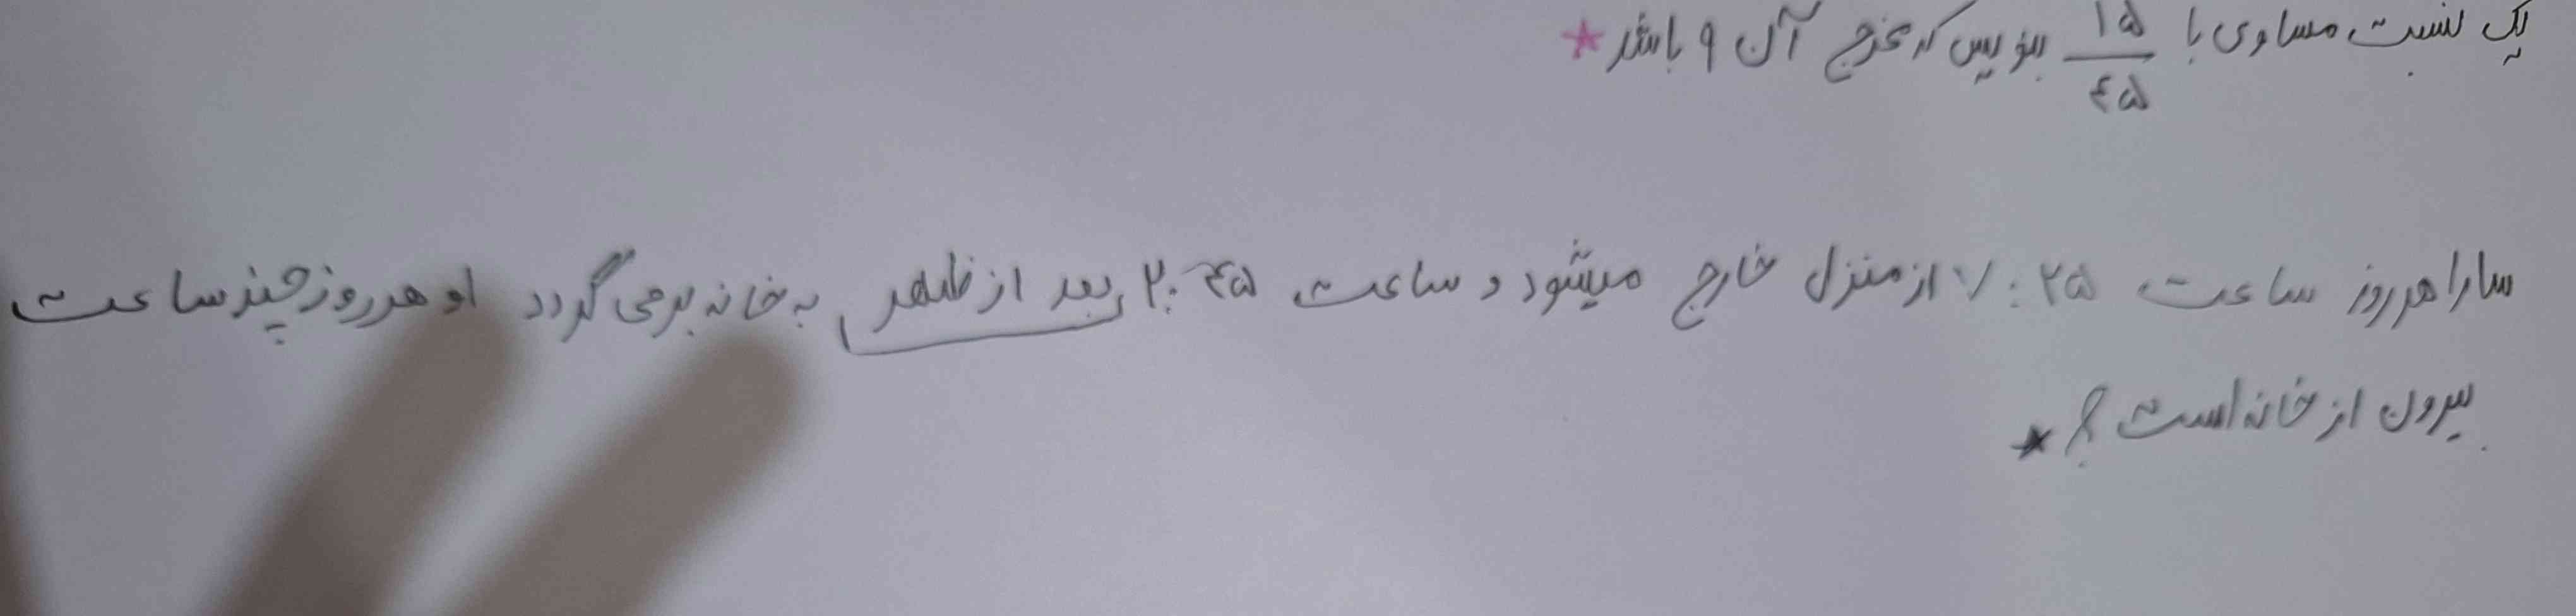 یک نسبت مساوی با ۱۵/۴۵ بنویس که مخرج آن ۹ باشد *
سارا هر روز ساعت ۷:۲۵ از منزل خارج میشود و ساعت ۲:۴۵ بعد از ظهر به خانه برمی گردد او هر روز چند ساعت
بیرون از خانه است؟ *